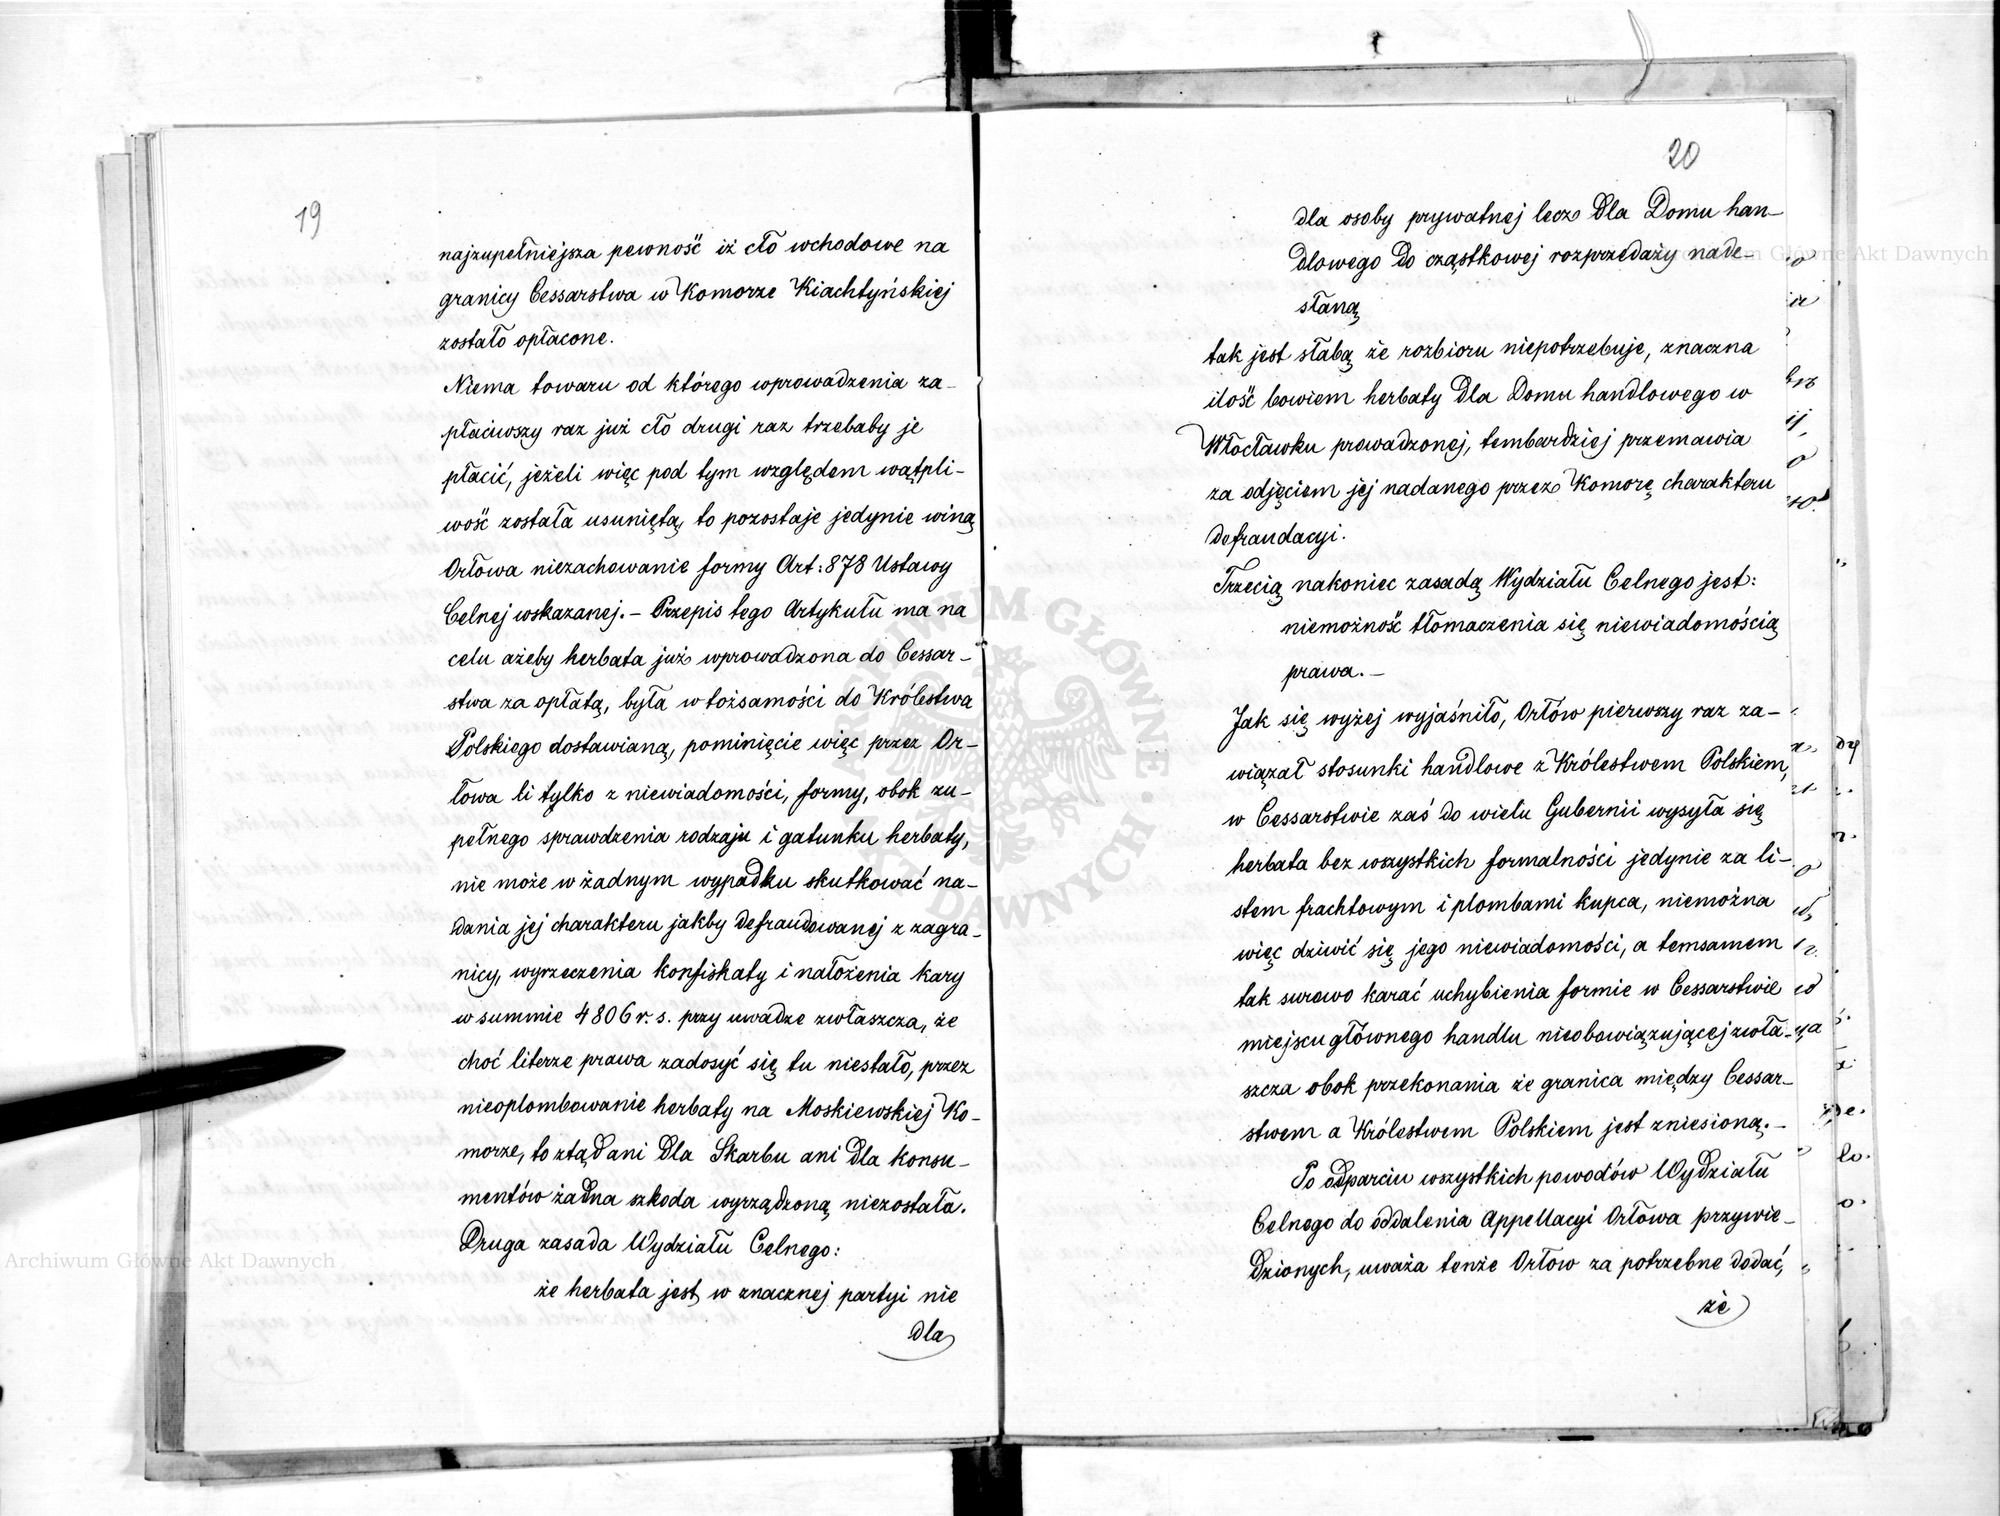 19
najzupełniejsza pewność iż cło wchodowe na
granicy Cessarstwa w Komorze Kiachtyńskiej
zostało opłacone.
Niema towaru od którego wprowadzenia za-
płaciwszy raz już cło drugi raz trzebaby je
płacić, jeżeli więc pod tym względem wątpli-
wość została usuniętą, to pozostaje jedynie winą
Orłowa niezachowanie formy Art: 878 Ustawy
Celnej wskazanej. – Przepis tego Artykułu ma na
celu ażeby herbata już wprowadzona do Cessar-
stwa za opłatą, była w tożsamości do Królestwa
Polskiego dostawianą, pominięcie więc przez Or-
łowa li tylko z niewiadomości, formy, obok zu-
pełnego sprawdzenia rodzaju i gatunku herbaty,
nie może w żadnym wypadku skutkować na-
dania jej charakteru jakby defraudowanej z zagra-
nicy, wyrzeczenia konfiskaty i nałożenia kary
w summie 4806 r. s. przy uwadze zwłaszcza, że
choć literze prawa zadosyć się tu niestało, przez
nieoplombowanie herbaty na Moskiewskiej Ko-
morze, to ztąd ani dla Skarbu ani dla konsu-
mentów żadna szkoda wyrządzoną niezostała.
Druga zasada Wydziału Celnego:
że herbata jest w znacznej partyi nie
dla
20
dla osoby prywatnej lecz dla Domu han-
dlowego do cząstkowej rozprzedaży nade-
słaną
tak jest słabą że rozbioru niepotrzebuje, znaczna
ilość bowiem herbaty dla Domu handlowego w
Włocławku prowadzonej, tembardziej przemawia
za odjęciem jej nadanego przez Komorę charakteru
defraudacyi.
Trzecią nakoniec zasadą Wydziału Celnego jest:
niemożność tłomaczenia się niewiadomością
prawa. –
Jak się wyżej wyjaśniło, Orłów pierwszy raz za-
wiązał stosunki handlowe z Królestwem Polskiem,
w Cessarstwie zaś do wielu Gubernii wysyła się
herbata bez wszystkich formalności jedynie za li-
stem frachtowym i plombami kupca, niemożna
więc dziwić się jego niewiadomości, a temsamem
tak surowo karać uchybienia formie w Cessarstwie
miejscu głównego handlu nieobowiązującej zwła-
szcza obok przekonania że granica między Cessar-
stwem a Królestwem Polskiem jest zniesioną. –
Po odparciu wszystkich powodów Wydziału
Celnego do oddalenia Appellacyi Orłowa przywie-
dzionych, uważa tenże Orłow za potrzebne dodać,
że
Archiwum Główne Akt Dawnych
Archiwum Główne Akt Dawnych
ARCHIWUM GŁÓWNE AKT DAWNYCH